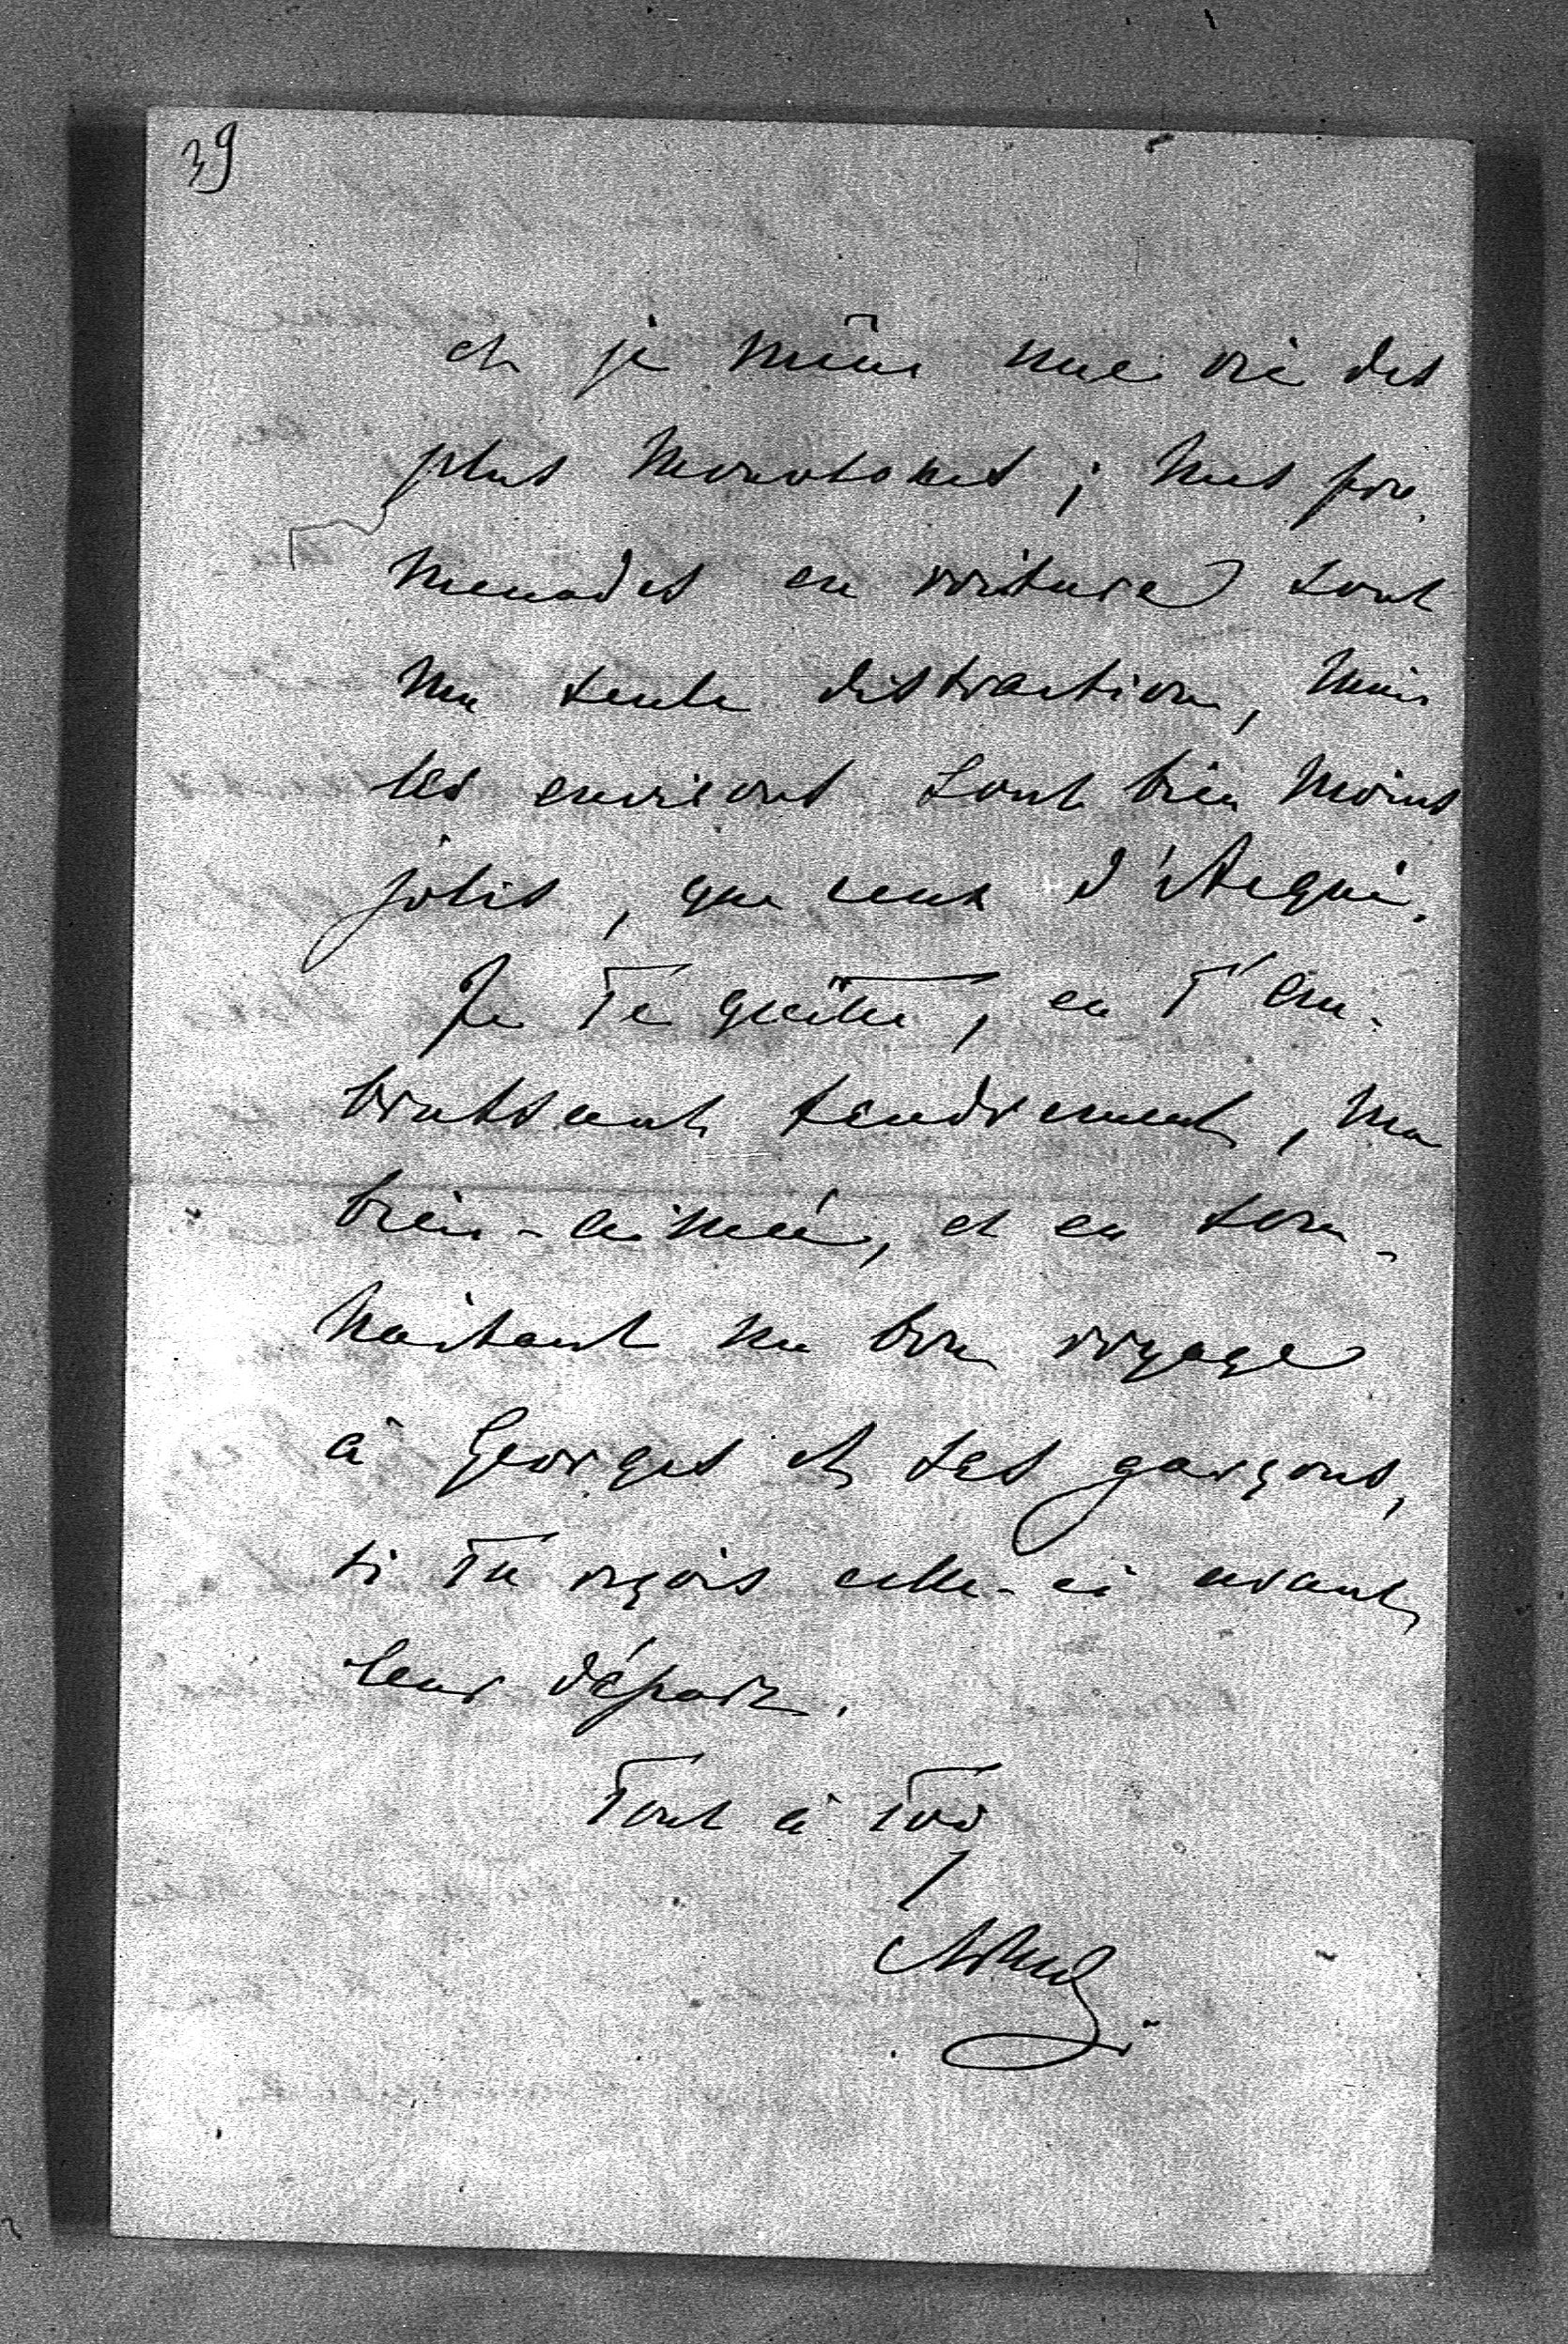 39
et je mène une vie des
plus monotones ; mes pro-
menades en voiture sont
ma seule distraction, mais
les environs sont bien moins
jolis, que ceux d'Acqui.
Je te quitte, en t'em-
brassant tendrement, ma
bien-aimée, et en sou-
haitant un bon voyage
à Georges et ses garçons,
si tu reçois celle-ci avant
leur départ.
Tout à toi